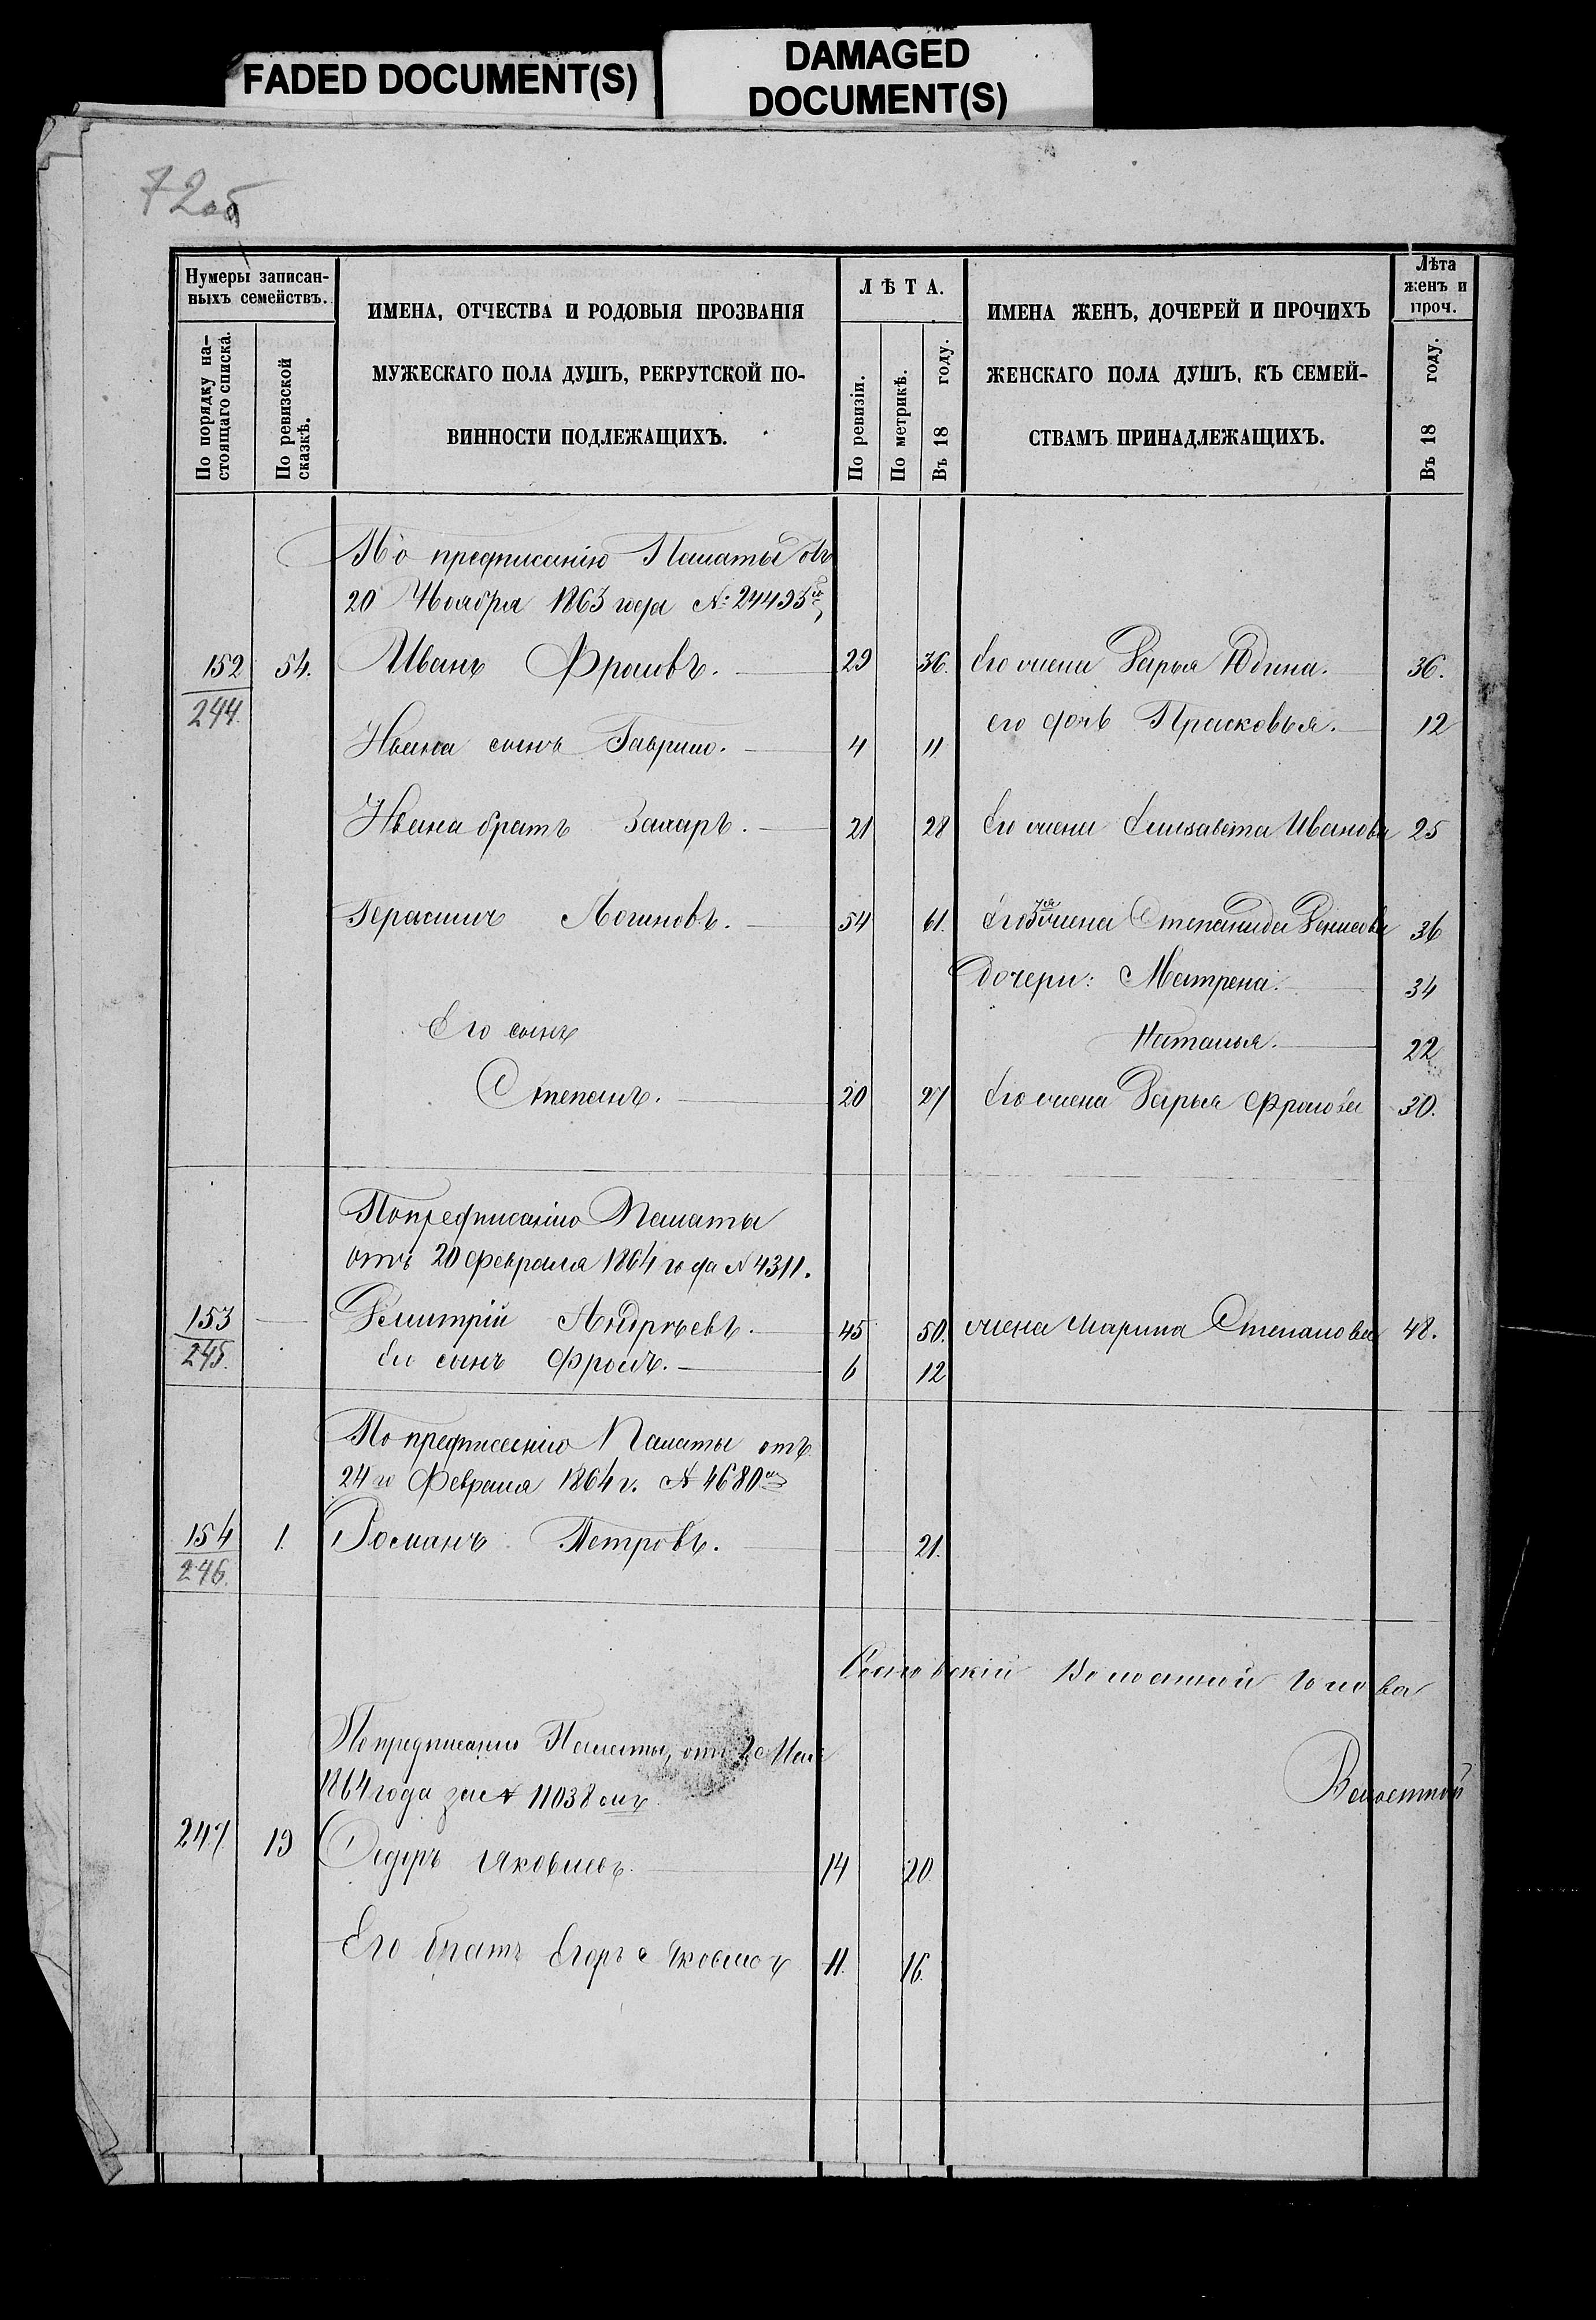 FADED DOCUMENT(S)
DAMAGED
DOCUMENT(S)
72об
Нумеры записан-
ныхъ семействъ.
По порядку на-
стоящаго списка.
По ревизской
сказкѣ.
ИМЕНА, ОТЧЕСТВА И РОДОВЫЯ ПРОЗВАНІЯ
МУЖЕСКАГО ПОЛА ДУШЪ, РЕКРУТСКОЙ ПО-
ВИННОСТИ ПОДЛЕЖАЩИХЪ.
ЛѢТА.
По ревизіи.
По метрикѣ.
Въ 18 году.
ИМЕНА ЖЕНЪ, ДОЧЕРЕЙ И ПРОЧИХЪ
ЖЕНСКАГО ПОЛА ДУШЪ, КЪ СЕМЕЙ-
СТВАМЪ ПРИНАДЛЕЖАЩИХЪ.
Лѣта
женъ и
проч.
Въ 18 году.
По предписанію Палаты отъ
20 Ноября 1863 года №24493
152 54. Иванъ Фроловъ. 29 36. Его жена Дарья Юдина. 36.
244.
его дочь Прасковья. 12
Ивана сынъ Гаврило. 4 11
Ивана братъ Захаръ. 21 28 Его жена Елизавета Иванова 25
Герасимъ Логиновъ. 54 61. Его 3я жена Степанида Денисова 36
Дочери: Матрена. 34
Его сынъ Наталья. 22
Степанъ. 20 27 Его жена Дарья Фролова 30.
По предписанію Палаты
отъ 20 февраля 1864 года №4311.
153 Дмитрій Андреевъ. 45 50. жена Марина Степанова 48.
245. Его сынъ Фролъ. 6 12
По предписанію Палаты отъ
24го Февраля 1864 г. № 4680
154 1. Романъ Петровъ. 21.
246.
Волостной Голова
По предписанію Палаты, отъ 2 Мая
1864 года за № 11038
Волостной
247 19 Сидоръ Яковлевъ. 14 20.
Его братъ Егоръ Яковлевъ 11. 16.